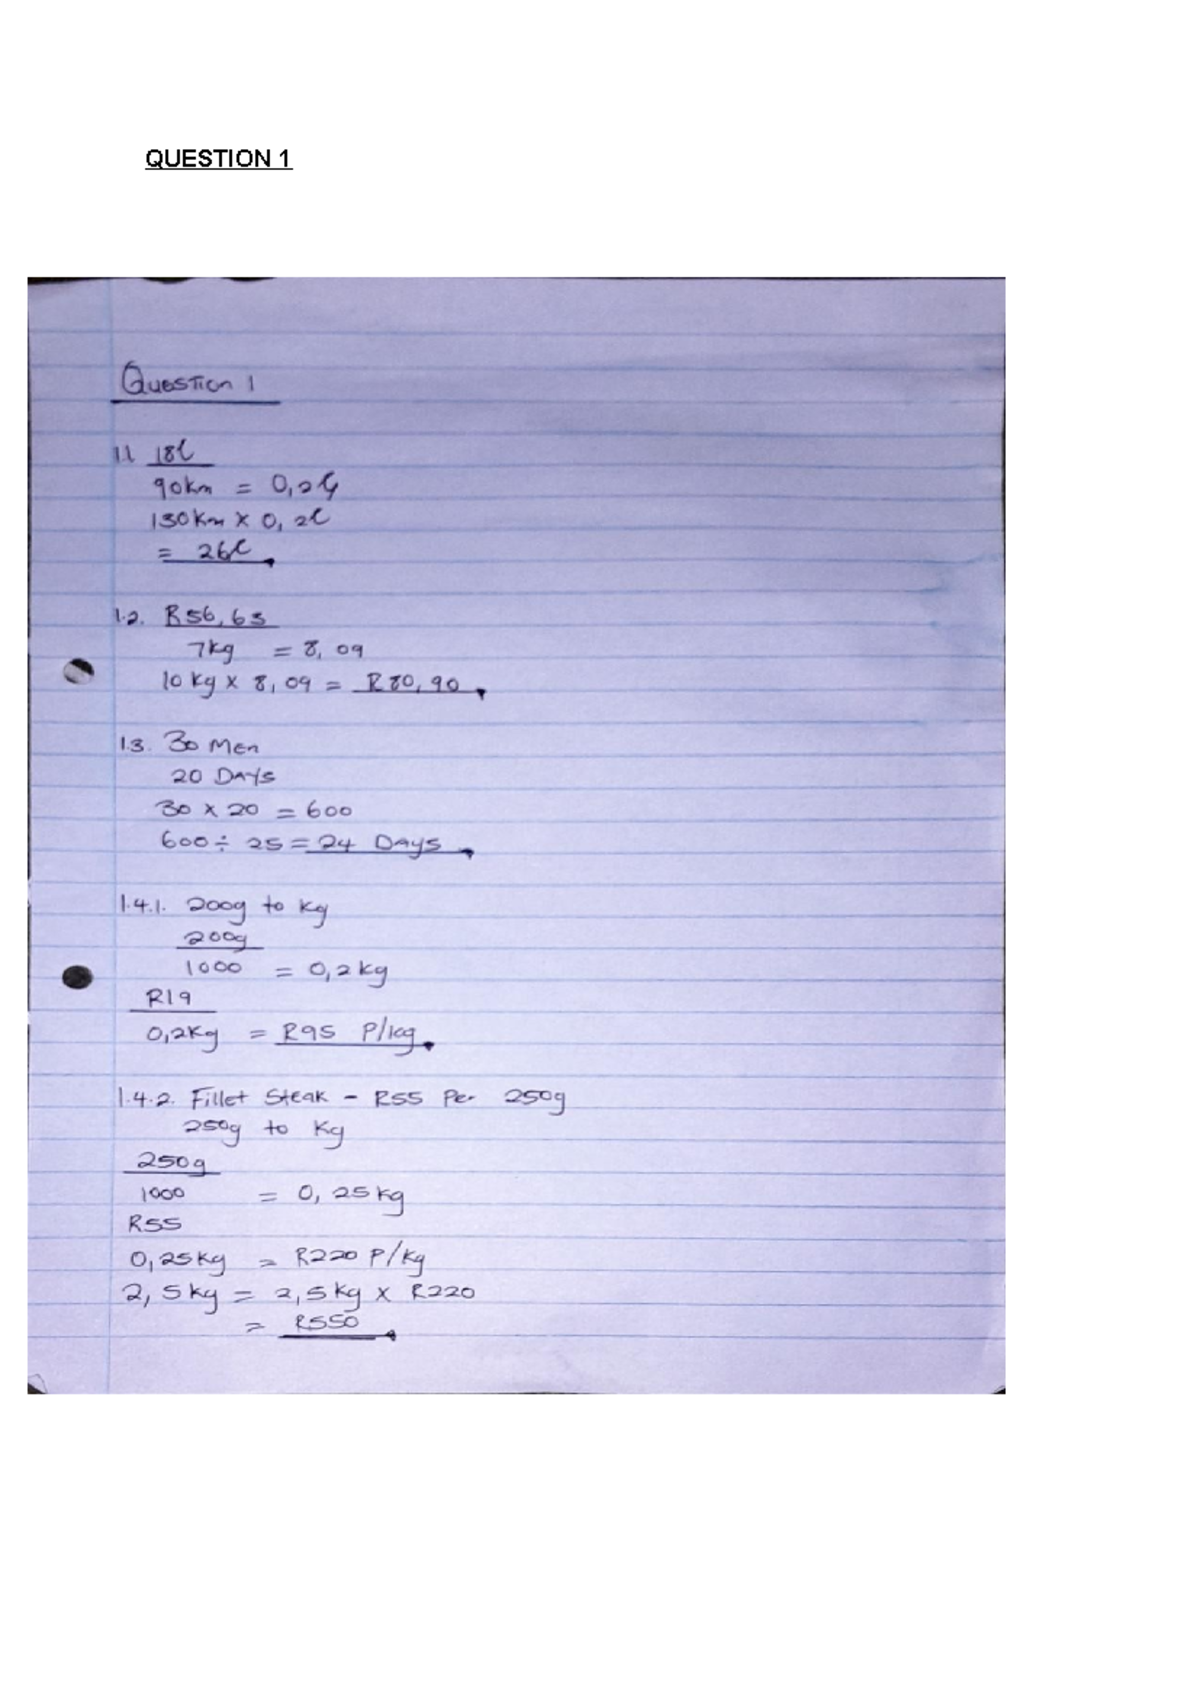 QUESTION 1
Question 1
1.1. 18l
90km = 0,2l
130km x 0,2l
= 26l
1.2. R56,63
7kg = 8,09
10kg x 8,09 = R80,90
1.3. 30 Men
20 DAYS
30 x 20 = 600
600 ÷ 25 = 24 DAYS
1.4.1. 200g to kg
200g
1000 = 0,2kg
R19
0,2Kg = R95 P/kg
1.4.2. Fillet Steak - R55 Per 250g
250g to Kg
250g
1000 = 0,25kg
R55
0,25Kg = R220 P/Kg
2,5kg = 2,5kg x R220
= R550